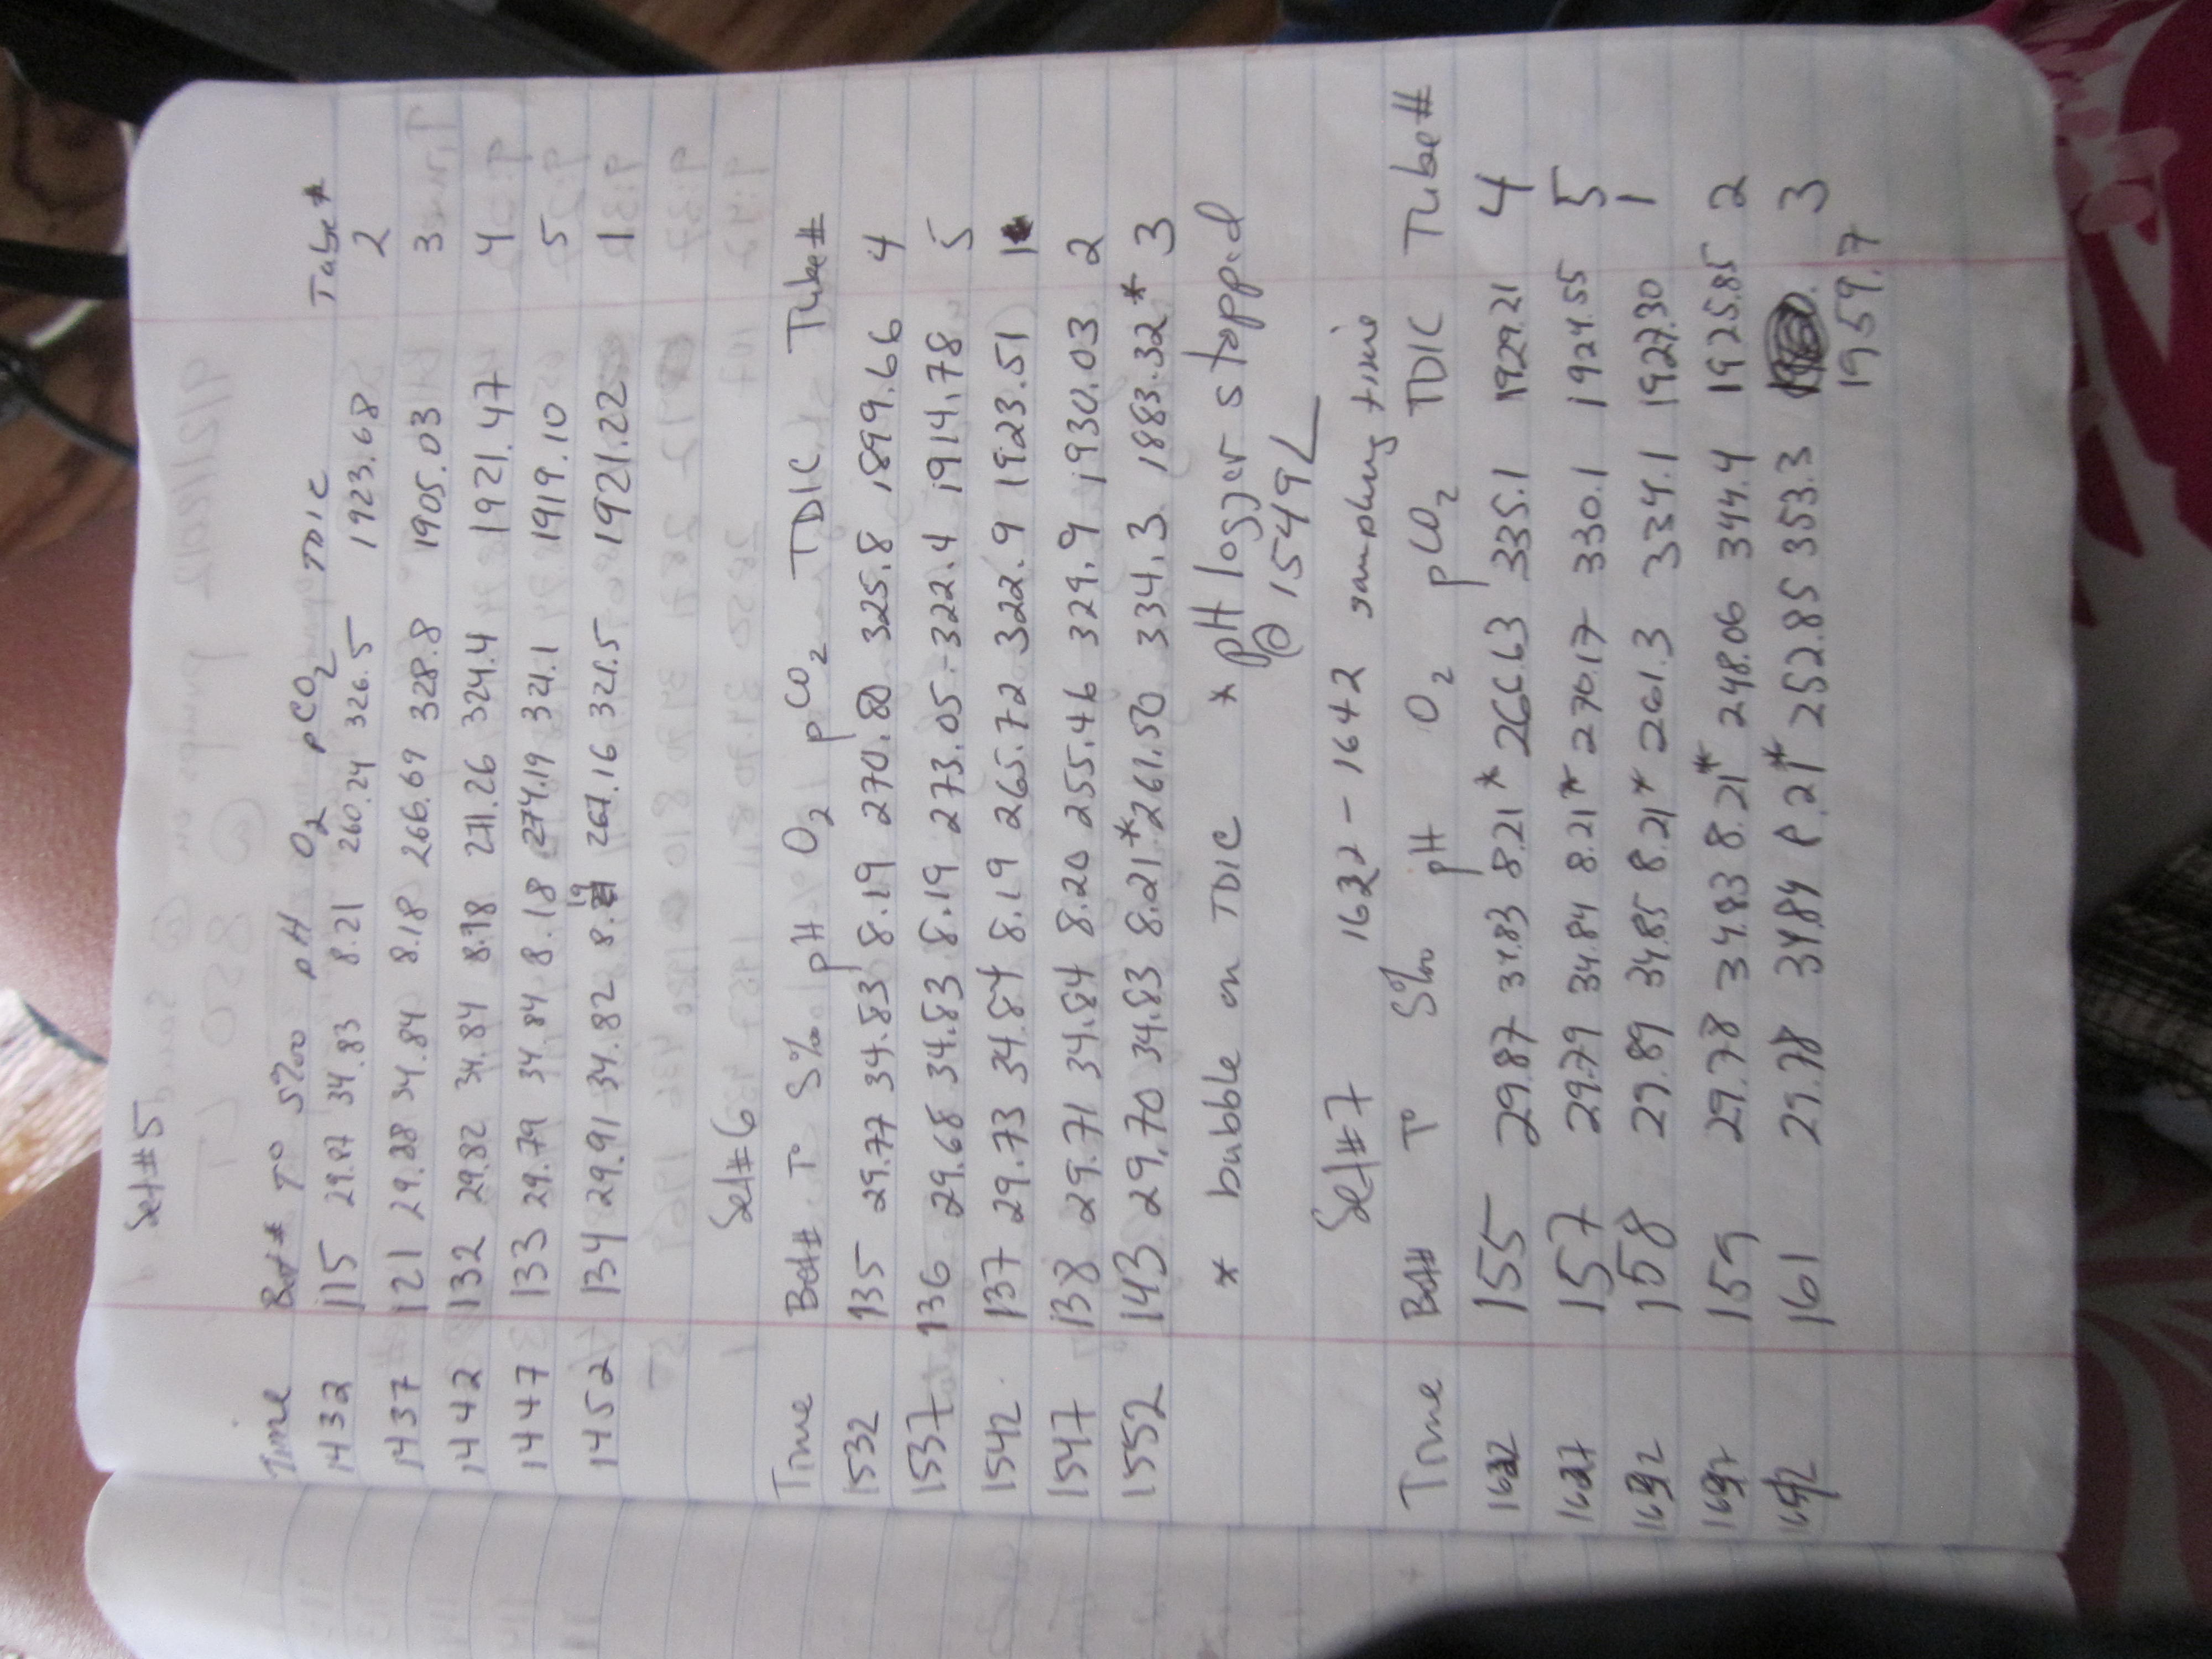 Set#5
Time Bot# T° S‰ pH O2 pCO2 TDIC Tube#
1432 115 29.87 34.83 8.21 260.24 326.5 1923.68 2
1437 121 29.88 34.84 8.18 266.69 328.8 1905.03 3
1442 132 29.82 34.84 8.18 271.26 324.4 1921.47 4
1447 133 29.79 34.84 8.18 274.19 321.1 1919.10 5
1452 134 29.91 34.82 8.19 267.16 321.5 1921.22 1
Set#6
Time Bot# T° S‰ pH O2 pCO2 TDIC Tube#
1532 135 29.77 34.83 8.19 270.80 325.8 1899.66 4
1537 136 29.68 34.83 8.19 273.05 322.4 1914.78 5
1542 137 29.73 34.84 8.19 265.72 322.9 1923.51 1
1547 138 29.71 34.84 8.20 255.46 329.9 1930.03 2
1552 143 29.70 34.83 8.21* 261.50 334.3 1883.32* 3
* bubble on TDIC * pH logger stopped
@ 1549L
Set#7 1622 - 1642 sampling time
Time Bot# T° S‰ pH O2 pCO2 TDIC Tube#
1622 155 29.87 34.83 8.21* 266.63 335.1 1929.21 4
1627 157 29.79 34.84 8.21* 270.17 330.1 1924.55 5
1632 158 29.89 34.85 8.21* 261.3 334.1 1927.30 1
1637 159 29.78 34.83 8.21* 248.06 344.4 1925.85 2
1642 161 29.78 34.84 8.21* 252.85 353.3 3
1959.7